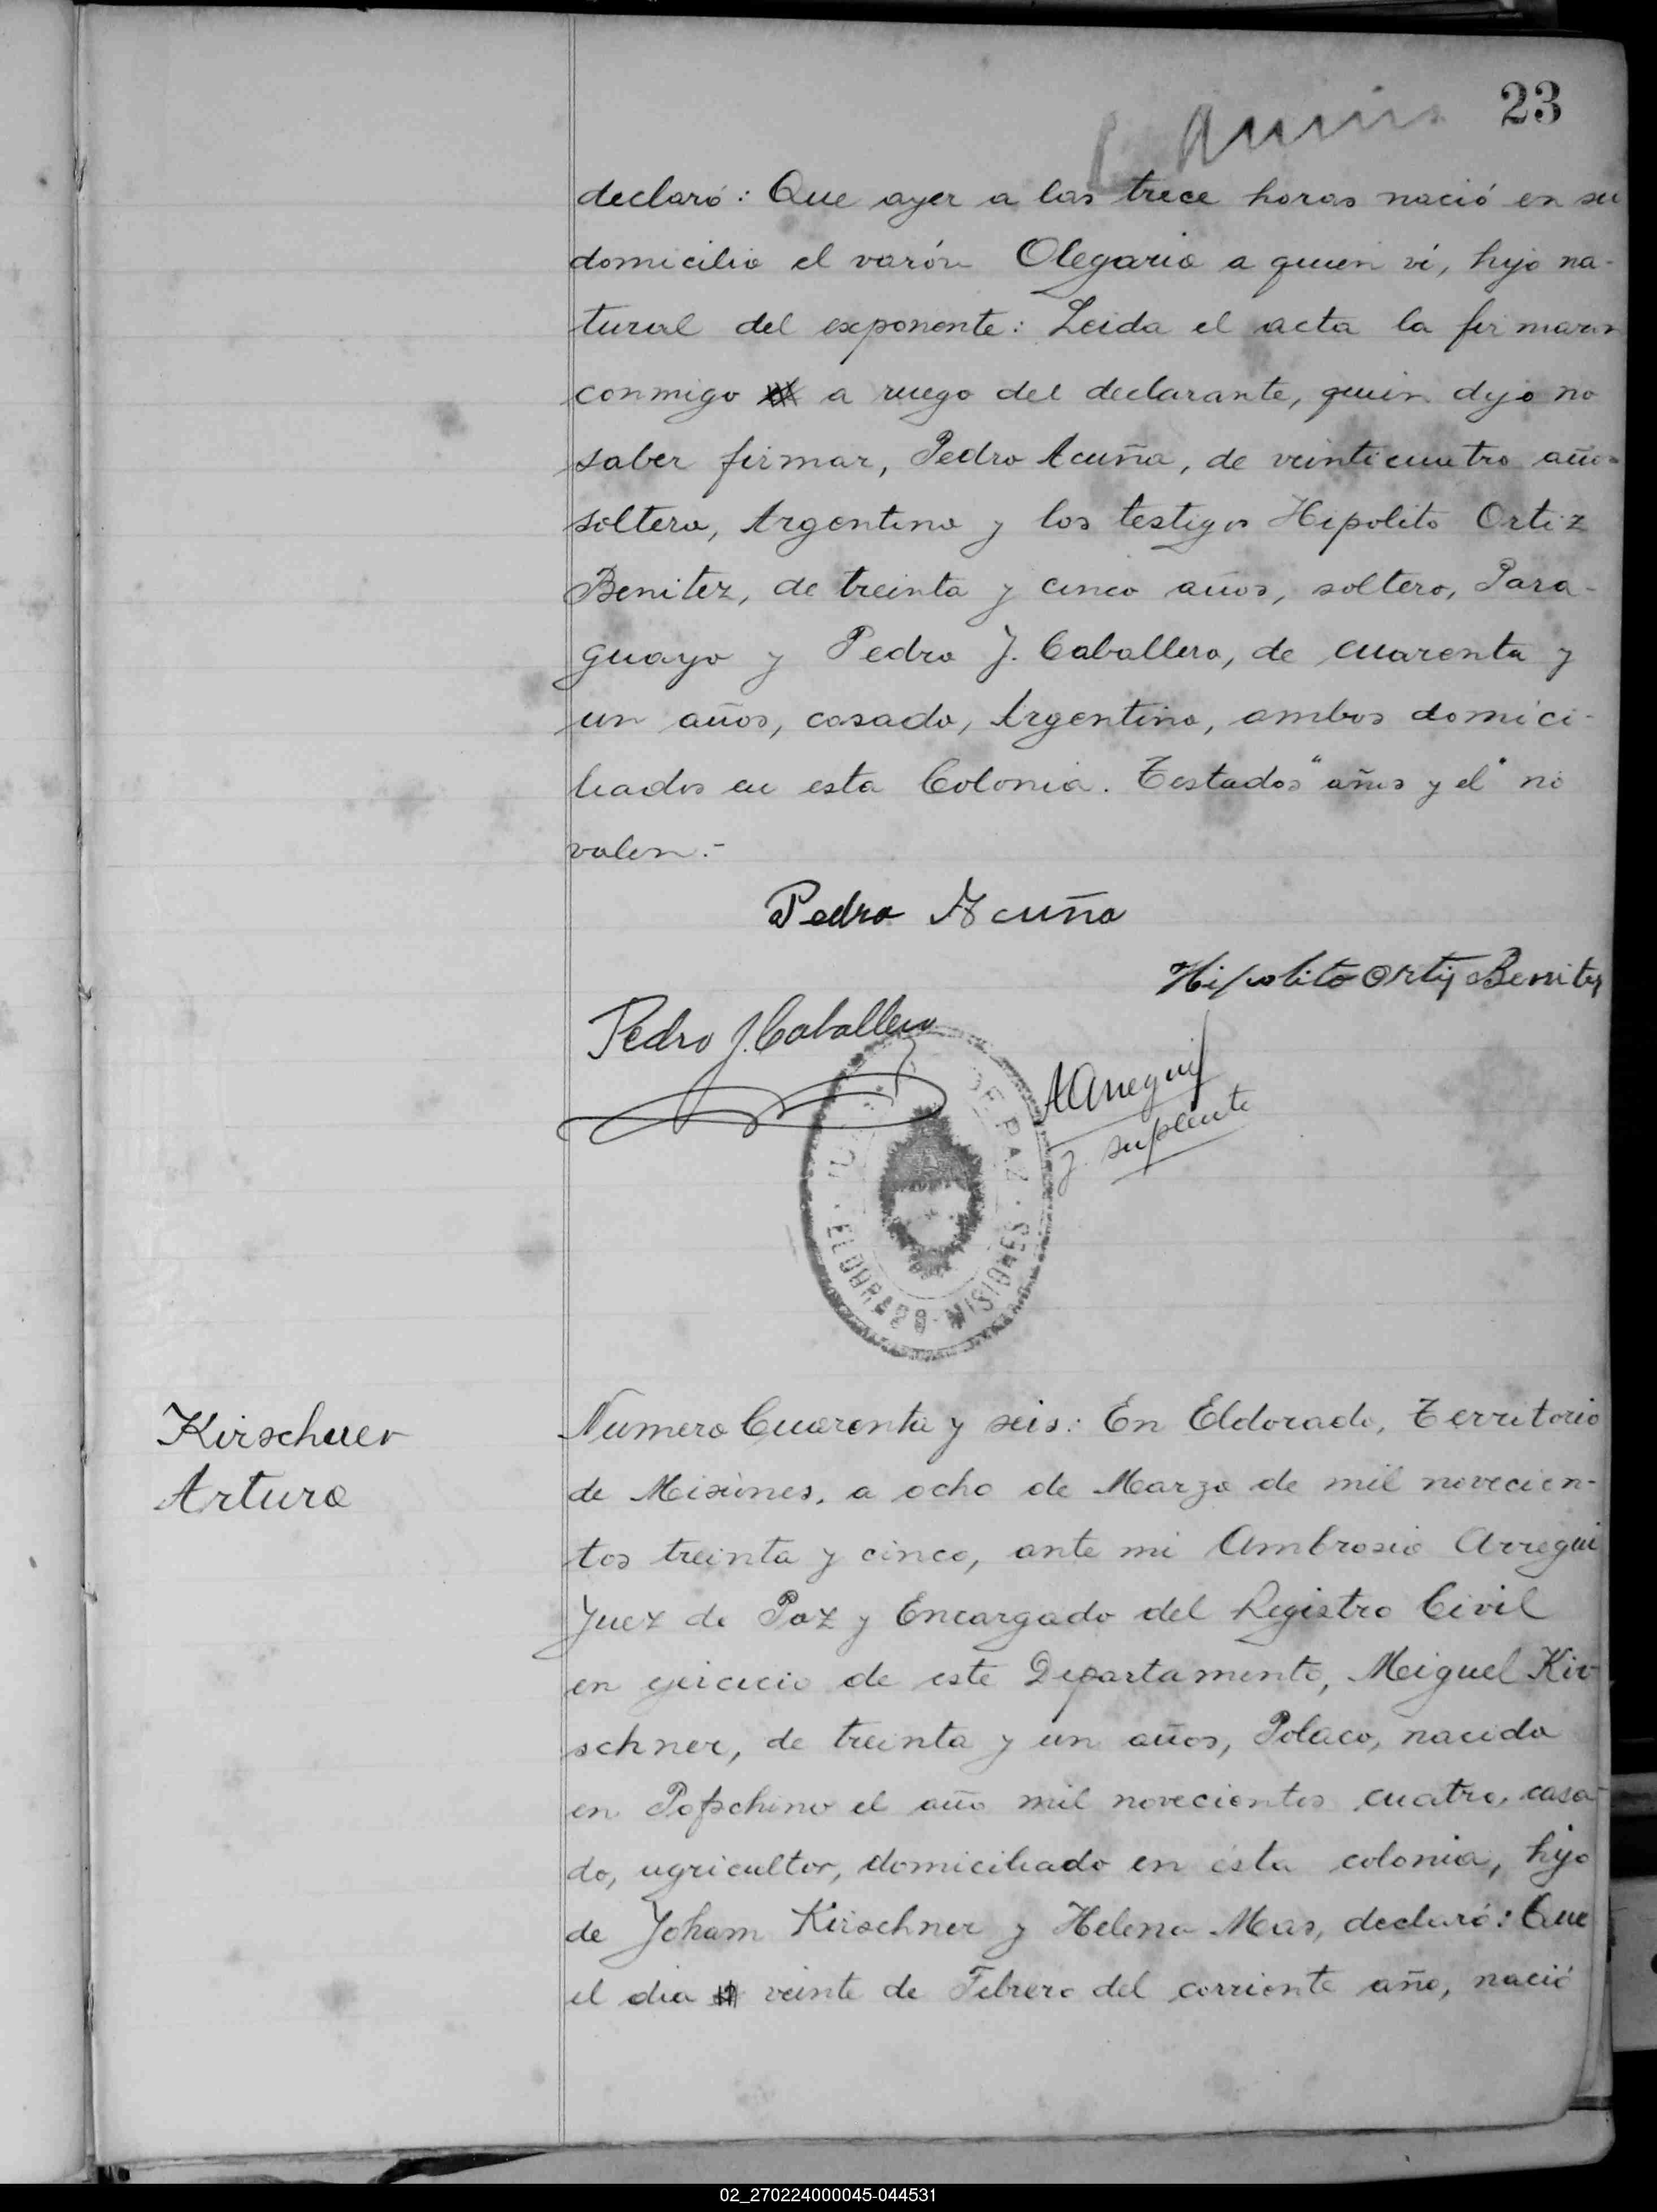 23
declaró: Que ayer a las trece horas nació en su
domicilio el varón Olegario a quien ví, hijo na-
tural del exponente: Leida el acta la firmaron
conmigo a ruego del declarante, quien dijo no
saber firmar, Pedro Acuña, de veinticuatro años
soltero, Argentino y los testigos Hipolito Ortiz
Benitez, de treinta y cinco años, soltero, Para-
guayo y Pedro J. Caballero, de cuarenta y
un años, casado, Argentino, ambos domici-
liados en esta Colonia. Testados "años y el" no
valen.-
Pedro Acuña
Hipolito Ortiz Benitez
Pedro J. Caballero
AArregui
J. suplente
DE PAZ
ELDORADO - MISIONES
Kirschner
Arturo
Numero Cuarenta y seis: En Eldorado, Territorio
de Misiones, a ocho de Marzo de mil novecien-
tos treinta y cinco, ante mi Ambrosio Arregui
Juez de Paz y Encargado del Registro Civil
en ejercicio de este Departamento, Miguel Kir-
schner, de treinta y un años, Polaco, nacido
en el año mil novecientos cuatro, casa-
do, agricultor, domiciliado en ésta colonia, hijo
de Joham Kirschner y Helena Mas, declaró: Que
el dia veinte de Febrero del corriente año, nació
02_270224000045-044531